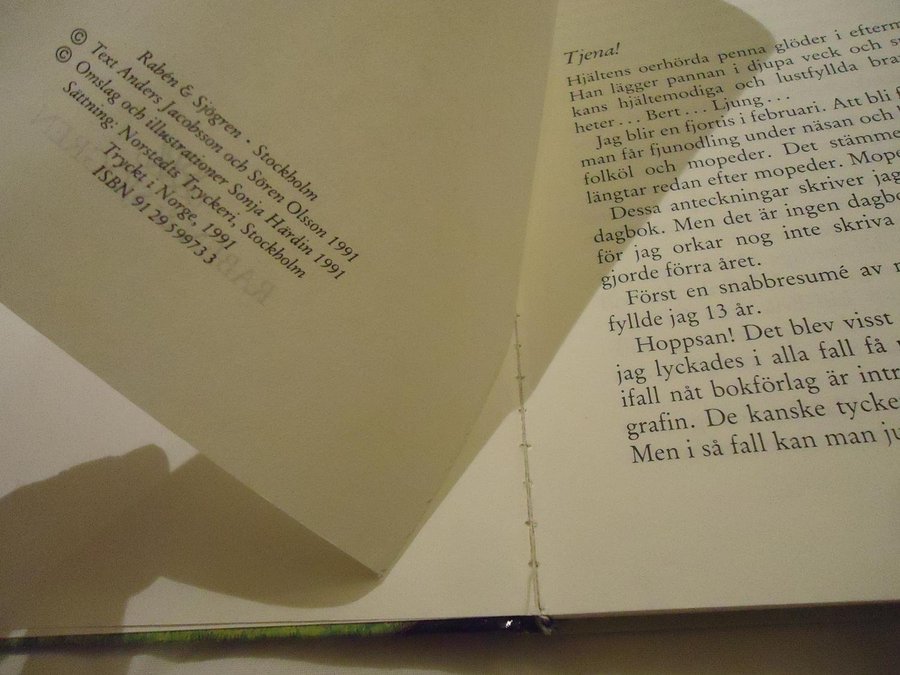 Rabén & Sjögren • Stockholm
© Text Anders Jacobsson och Sören Olsson 1991
© Omslag och illustrationer Sonja Härdin 1991
Sättning: Norstedts Tryckeri, Stockholm
Tryckt i Norge, 1991
ISBN 91 29 59973 3
Tjena!
Hjältens oerhörda penna glöder i efterm
Han lägger pannan i djupa veck och
kans hjältemodiga och lustfyllda bra
heter . . . Bert . . . Ljung . . .
Jag blir en fjortis i februari. Att bli
man får fjunodling under näsan och
folköl och mopeder. Det stämme
längtar redan efter mopeder. Mope
Dessa anteckningar skriver jag
dagbok. Men det är ingen dagbo
för jag orkar nog inte skriva
gjorde förra året.
Först en snabbresumé av
fyllde jag 13 år.
Hoppsan! Det blev visst
jag lyckades i alla fall få
ifall nåt bokförlag är intr
grafin. De kanske tycke
Men i så fall kan man ju